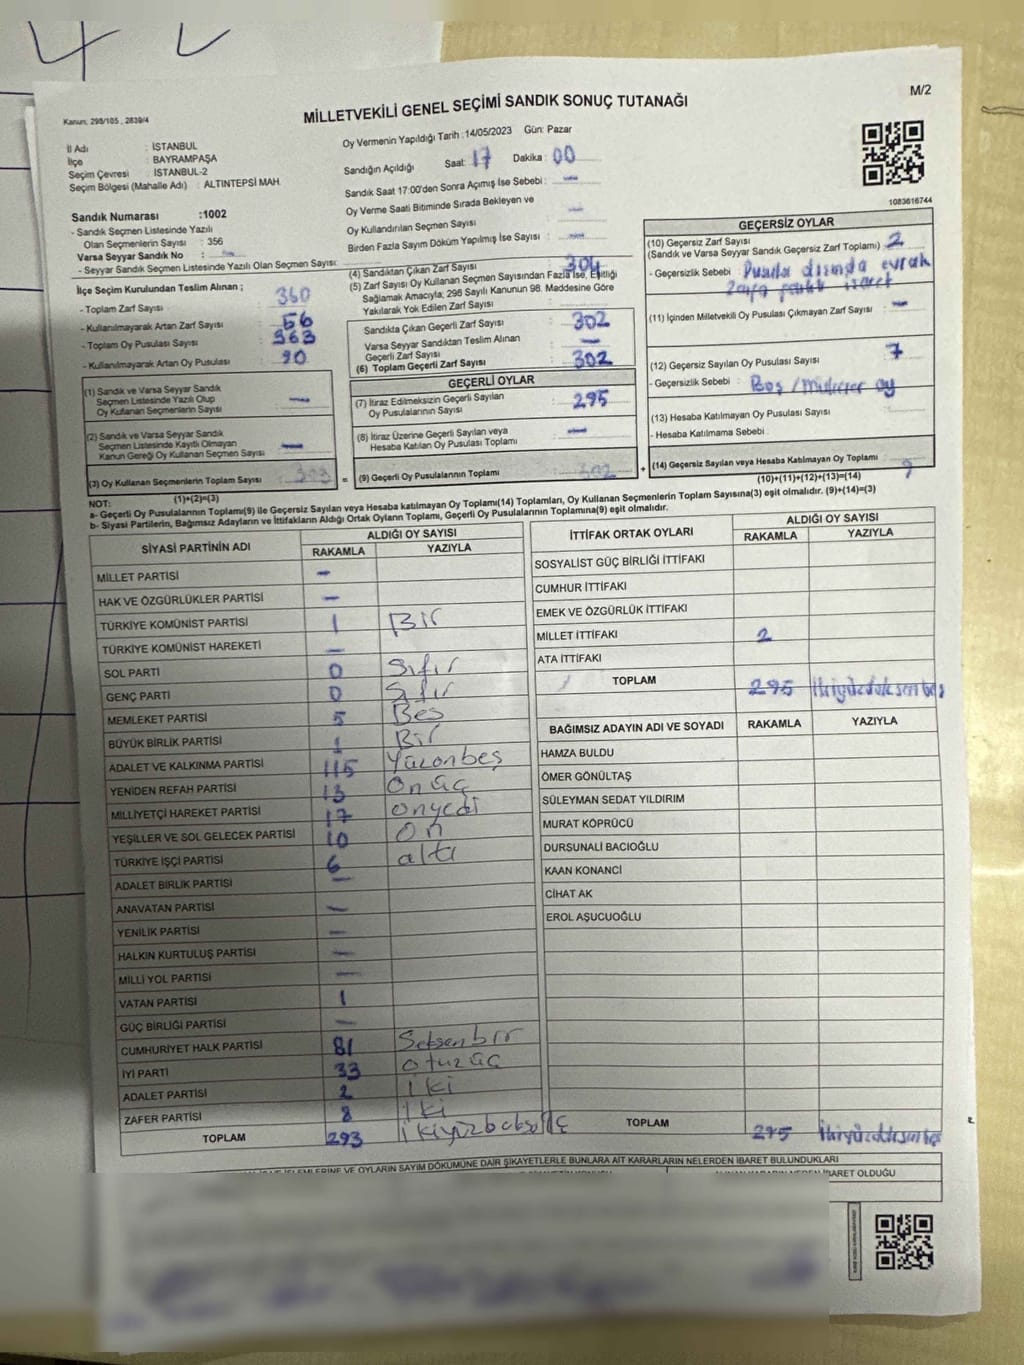 M/2
Kanun: 298/105 , 2839/4
MİLLETVEKİLİ GENEL SEÇİMİ SANDIK SONUÇ TUTANAĞI
İl Adı : İSTANBUL
İlçe : BAYRAMPAŞA
Seçim Çevresi : İSTANBUL-2
Seçim Bölgesi (Mahalle Adı) : ALTINTEPSİ MAH
Sandık Numarası :1002
- Sandık Seçmen Listesinde Yazılı
Olan Seçmenlerin Sayısı : 356
Varsa Seyyar Sandık No : -
- Seyyar Sandık Seçmen Listesinde Yazılı Olan Seçmen Sayısı:
İlçe Seçim Kurulundan Teslim Alınan ;
- Toplam Zarf Sayısı : 360
- Kullanılmayarak Artan Zarf Sayısı : 56
- Toplam Oy Pusulası Sayısı : 363
- Kullanılmayarak Artan Oy Pusulası :
(1) Sandık ve Varsa Seyyar Sandık
Seçmen Listesinde Yazılı Olup
Oy Kullanan Seçmenlerin Sayısı : -
(2) Sandık ve Varsa Seyyar Sandık
Seçmen Listesinde Kayıtlı Olmayan
Kanun Gereği Oy Kullanan Seçmen Sayısı : -
(3) Oy Kullanan Seçmenlerin Toplam Sayısı : 303
(1)+(2)=(3)
Oy Vermenin Yapıldığı Tarih :14/05/2023 Gün: Pazar
Sandığın Açıldığı Saat: 17 Dakika : 00
Sandık Saat 17:00'den Sonra Açımış İse Sebebi : -
Oy Verme Saati Bitiminde Sırada Bekleyen ve
Oy Kullandırılan Seçmen Sayısı : -
Birden Fazla Sayım Döküm Yapılmış İse Sayısı : -
(4) Sandıktan Çıkan Zarf Sayısı : 304
(5) Zarf Sayısı Oy Kullanan Seçmen Sayısından Fazla İse, Eşitliği
Sağlamak Amacıyla; 298 Sayılı Kanunun 98. Maddesine Göre
Yakılarak Yok Edilen Zarf Sayısı :
Sandıkta Çıkan Geçerli Zarf Sayısı : 302
Varsa Seyyar Sandıktan Teslim Alınan
Geçerli Zarf Sayısı : -
(6) Toplam Geçerli Zarf Sayısı : 302
GEÇERLİ OYLAR
(7) İtiraz Edilmeksizin Geçerli Sayılan
Oy Pusulalarının Sayısı : 295
(8) İtiraz Üzerine Geçerli Sayılan veya
Hesaba Katılan Oy Pusulası Toplamı : -
= (9) Geçerli Oy Pusulalarının Toplamı : 302 +
1083616744
GEÇERSİZ OYLAR
(10) Geçersiz Zarf Sayısı
(Sandık ve Varsa Seyyar Sandık Geçersiz Zarf Toplamı) : 2
- Geçersizlik Sebebi : Pusula dışında evrak
(11) İçinden Milletvekili Oy Pusulası Çıkmayan Zarf Sayısı : -
(12) Geçersiz Sayılan Oy Pusulası Sayısı : 7
- Geçersizlik Sebebi : Boş / oy
(13) Hesaba Katılmayan Oy Pusulası Sayısı :
- Hesaba Katılmama Sebebi :
(14) Geçersiz Sayılan veya Hesaba Katılmayan Oy Toplamı :
(10)+(11)+(12)+(13)=(14)
NOT:
a- Geçerli Oy Pusulalarının Toplamı(9) ile Geçersiz Sayılan veya Hesaba katılmayan Oy Toplamı(14) Toplamları, Oy Kullanan Seçmenlerin Toplam Sayısına(3) eşit olmalıdır. (9)+(14)=(3)
b- Siyasi Partilerin, Bağımsız Adayların ve İttifakların Aldığı Ortak Oyların Toplamı, Geçerli Oy Pusulalarının Toplamına(9) eşit olmalıdır.
SİYASİ PARTİNİN ADI ALDIĞI OY SAYISI
RAKAMLA YAZIYLA
MİLLET PARTİSİ -
HAK VE ÖZGÜRLÜKLER PARTİSİ -
TÜRKİYE KOMÜNİST PARTİSİ 1 Bir
TÜRKİYE KOMÜNİST HAREKETİ -
SOL PARTİ 0 Sıfır
GENÇ PARTİ 0 Sıfır
MEMLEKET PARTİSİ 5 Beş
BÜYÜK BİRLİK PARTİSİ 1 Bir
ADALET VE KALKINMA PARTİSİ 115 Yüzonbeş
YENİDEN REFAH PARTİSİ 13 Onüç
MİLLİYETÇİ HAREKET PARTİSİ 17 onyedi
YEŞİLLER VE SOL GELECEK PARTİSİ 10 On
TÜRKİYE İŞÇİ PARTİSİ 6 altı
ADALET BİRLİK PARTİSİ -
ANAVATAN PARTİSİ -
YENİLİK PARTİSİ -
HALKIN KURTULUŞ PARTİSİ -
MİLLİ YOL PARTİSİ -
VATAN PARTİSİ 1
GÜÇ BİRLİĞİ PARTİSİ -
CUMHURİYET HALK PARTİSİ 81 Seksenbir
İYİ PARTİ 33 otuzüç
ADALET PARTİSİ 2 iki
ZAFER PARTİSİ 8 iki
TOPLAM 293
İTTİFAK ORTAK OYLARI ALDIĞI OY SAYISI
RAKAMLA YAZIYLA
SOSYALİST GÜÇ BİRLİĞİ İTTİFAKI
CUMHUR İTTİFAKI
EMEK VE ÖZGÜRLÜK İTTİFAKI
MİLLET İTTİFAKI 2
ATA İTTİFAKI
TOPLAM 295 İkiyüzdoksanbeş
BAĞIMSIZ ADAYIN ADI VE SOYADI RAKAMLA YAZIYLA
HAMZA BULDU
ÖMER GÖNÜLTAŞ
SÜLEYMAN SEDAT YILDIRIM
MURAT KÖPRÜCÜ
DURSUNALİ BACIOĞLU
KAAN KONANCİ
CİHAT AK
EROL AŞUCUOĞLU
TOPLAM 295 İkiyüzdoksanbeş
İŞLEMLERİNE VE OYLARIN SAYIM DÖKÜMÜNE DAİR ŞİKAYETLERLE BUNLARA AİT KARARLARIN NELERDEN İBARET BULUNDUKLARI
İBARET OLDUĞU